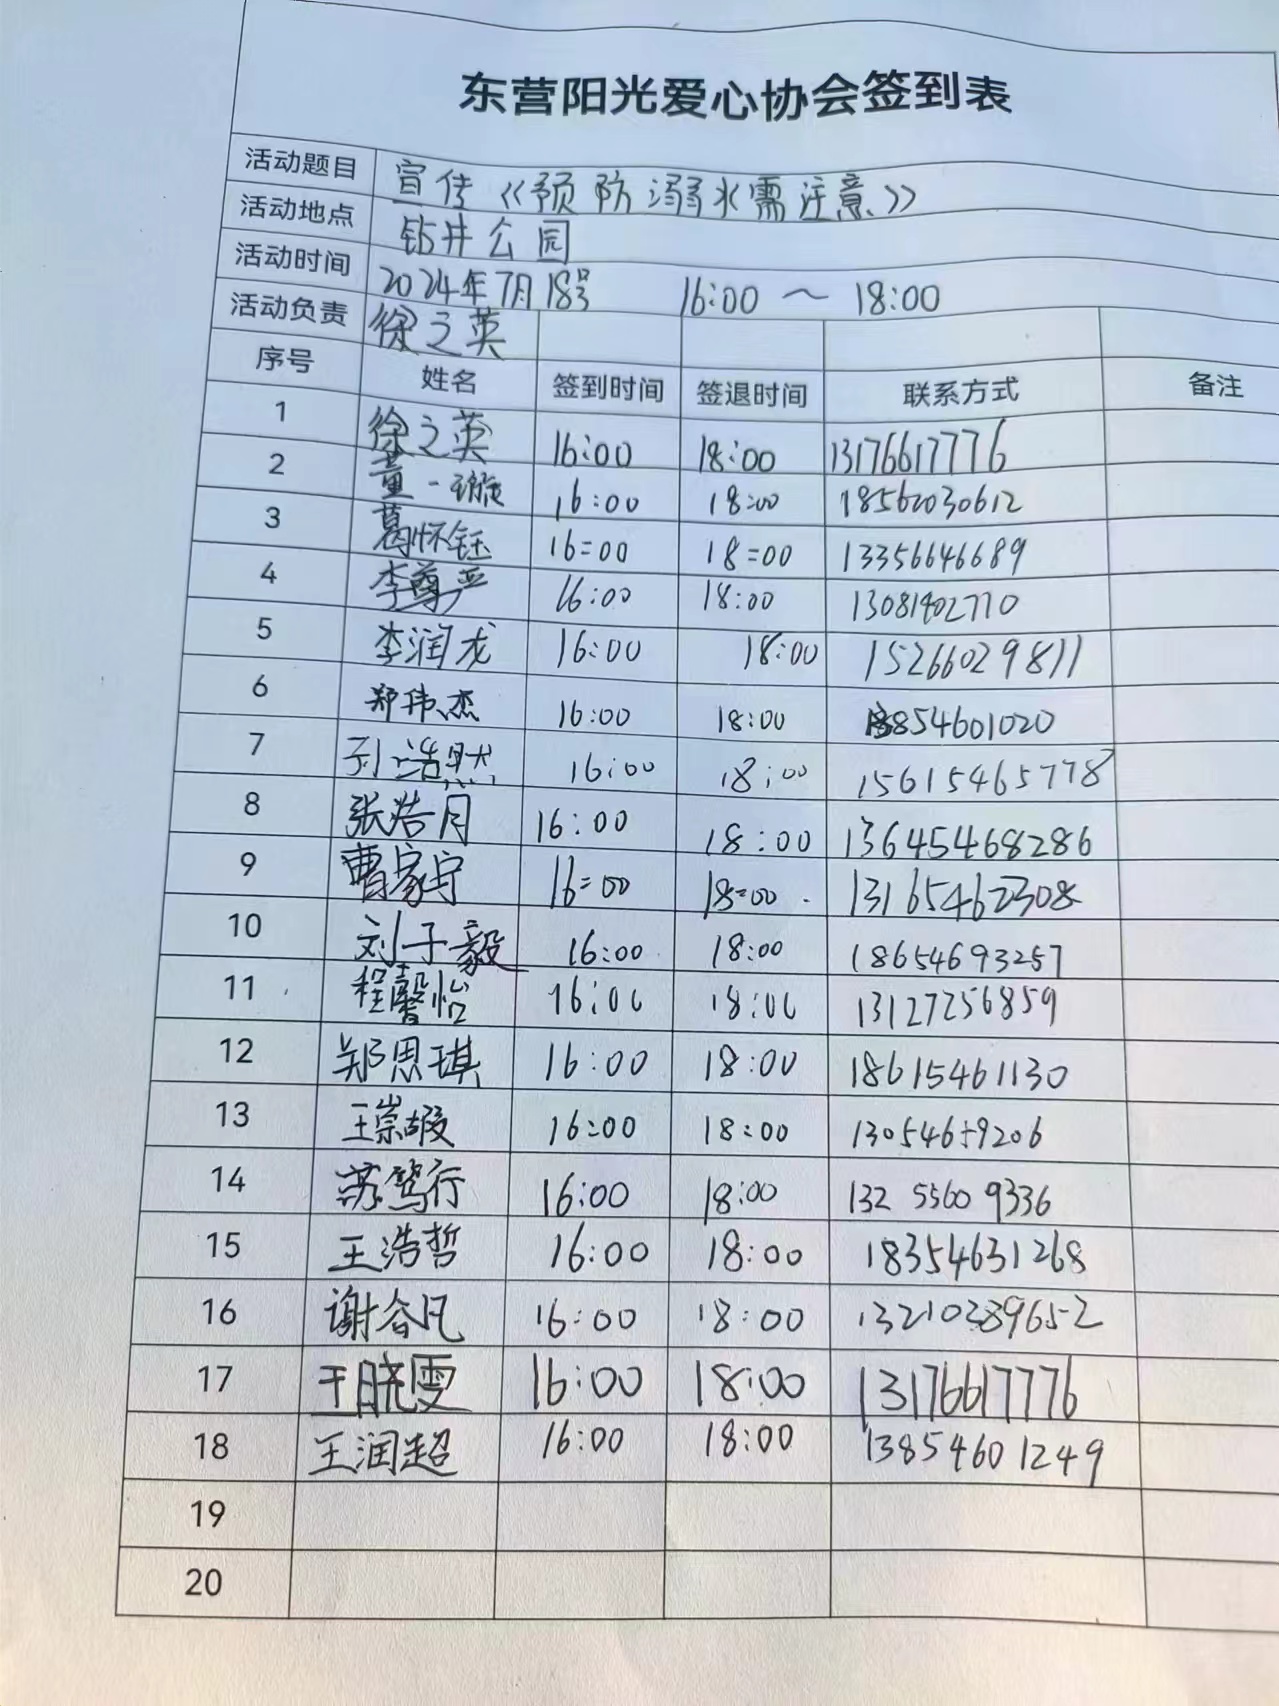 东营阳光爱心协会签到表
活动题目 宣传《预防溺水需注意》
活动地点 钻井公园
活动时间 2024年7月18号 16:00 ~ 18:00
活动负责 徐之英
序号 姓名 签到时间 签退时间 联系方式 备注
1 徐之英 16:00 18:00 13176617776
2 董一璇 16:00 18:00 18562030612
3 葛怀钰 16=00 18=00 13356646689
4 李尊严 16:00 18:00 13081402710
5 李润龙 16:00 18:00 15266029811
6 郑伟杰 16:00 18:00 13854601020
7 孙浩然 16:00 18:00 15615465778
8 张浩月 16:00 18:00 13645468286
9 曹家宁 16=00 18=00 13165462308
10 刘子毅 16:00 18:00 18654693257
11 程馨怡 16:00 18:00 13127256859
12 郑思琪 16:00 18:00 18615461130
13 王崇嘏 16:00 18:00 13054659206
14 苏笃行 16:00 18:00 132 5560 9336
15 王浩哲 16:00 18:00 18354631268
16 谢谷凡 16:00 18:00 13210389652
17 于晓雯 16:00 18:00 13176617776
18 王润超 16:00 18:00 13854601249
19
20